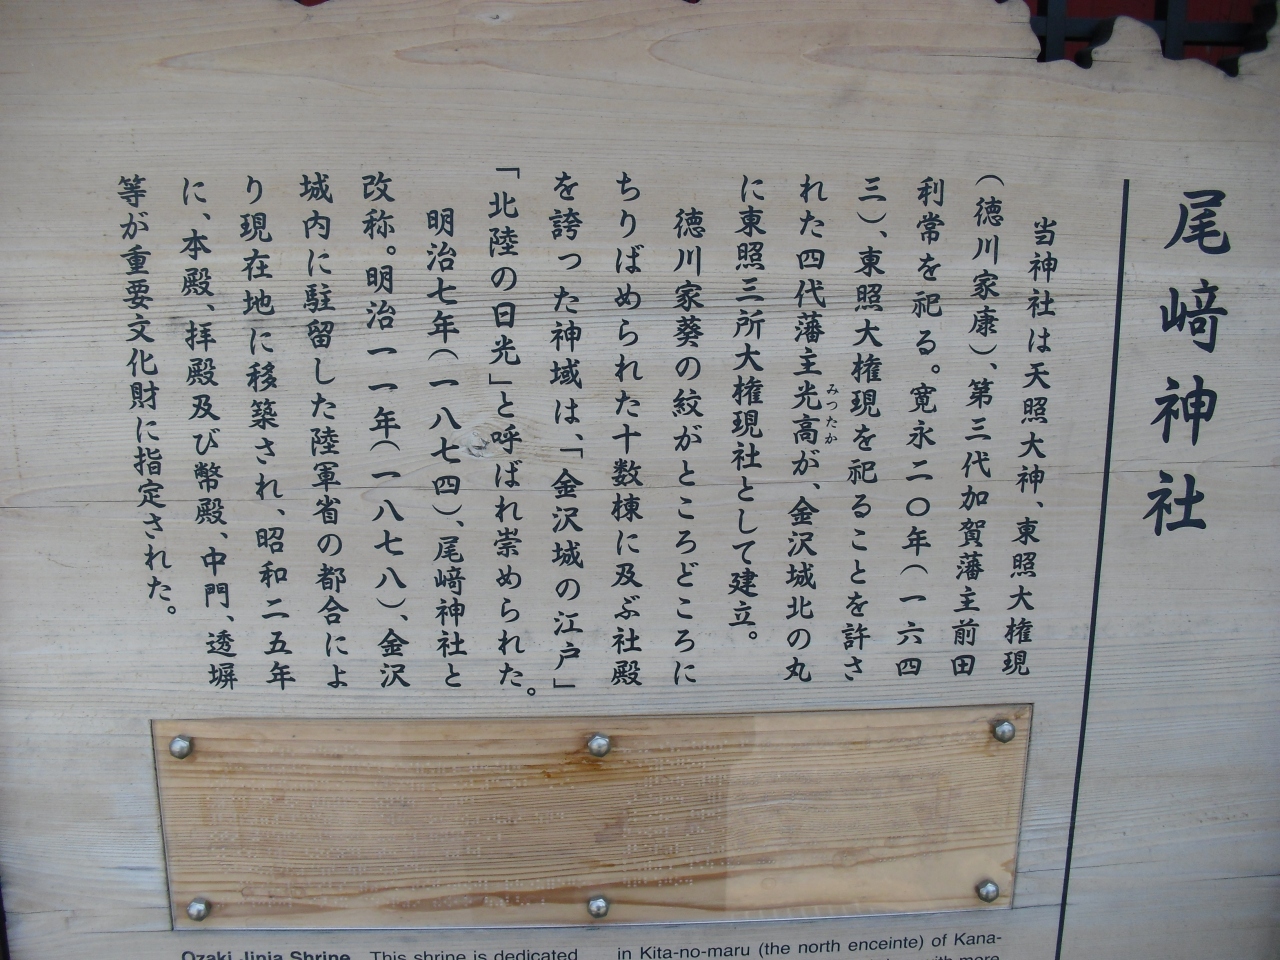 尾﨑神社
当神社は天照大神、東照大権現
（徳川家康）、第三代加賀藩主前田
利常を祀る。寛永二〇年（一六四
三）、東照大権現を祀ることを許さ
れた四代藩主光高が、金沢城北の丸
みつたか
に東照三所大権現社として建立。
徳川家葵の紋がところどころに
ちりばめられた十数棟に及ぶ社殿
を誇った神域は、「金沢城の江戸」
「北陸の日光」と呼ばれ崇められた。
明治七年（一八七四）、尾﨑神社と
改称。明治一一年（一八七八）、金沢
城内に駐留した陸軍省の都合によ
り現在地に移築され、昭和二五年
に、本殿、拝殿及び幣殿、中門、透塀
等が重要文化財に指定された。
Ozaki Jinja Shrine This shrine is dedicated
in Kita-no-maru (the north enceinte) of Kana-
with more